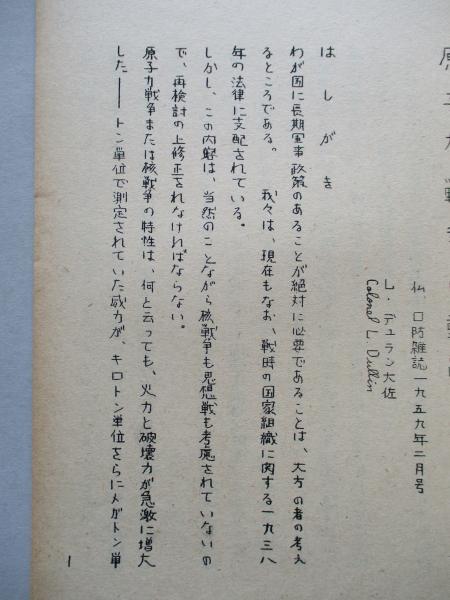 原子力戦
仏、口防雑誌一九五九年二月号
L・デュラン大佐
Colonel L. Dullin
はしがき
わが国に長期軍事政策のあることが絶対に必要であることは、大方の者の考え
るところである。 我々は、現在もなお、戦時の国家組織に関する一九三八
年の法律に支配されている。
しかし、この内容は、当然のことながら核戦争も思想戦も考慮されていないの
で、再検討の上修正されなければならない。
原子力戦争または核戦争の特性は、何と云っても、火力と破壊力が急激に増大
した――トン単位で測定されていた威力が、キロトン単位さらにメガトン単
1